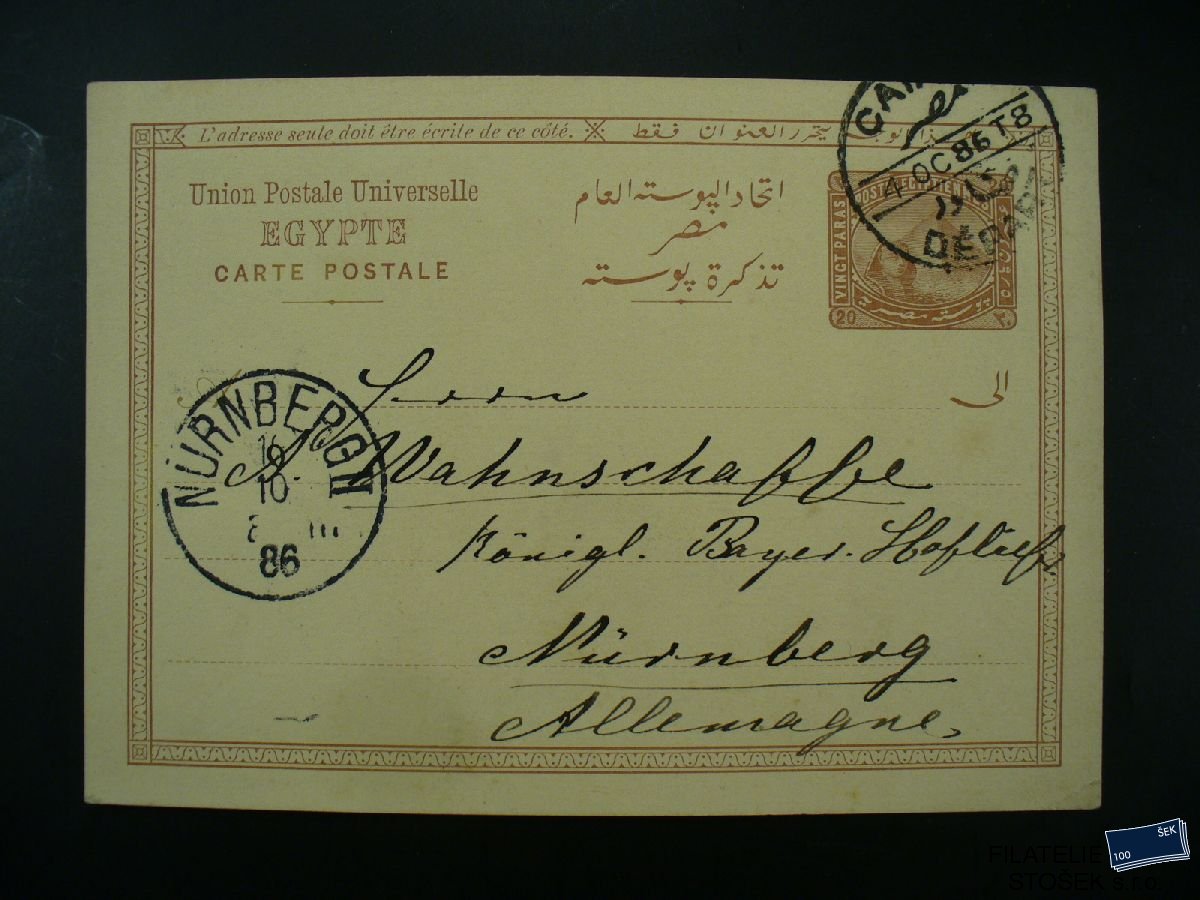 L'adresse seule doit être écrite de ce côté. فقط العنوان يحرر
Union Postale Universelle
EGYPTE
CARTE POSTALE
اتحاد البوسته العام
مصر
تذكرة بوسته
4 OC 86 T8
DÉPART
VINGT PARAS
بوسته مصرية
20 ٢٠
الى
Herrn
A. Wahnschaffe
Königl. Bayer. Hoflief.
Nürnberg
Allemagne
NÜRNBERG II
10
86
FILATELIE
STOŠEK s.r.o.
100 ŠEK